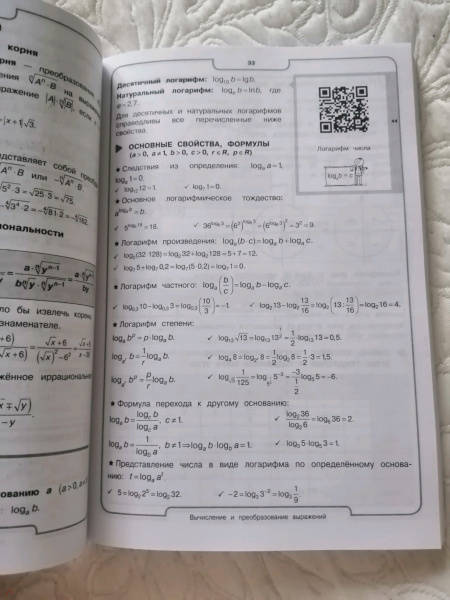 корня
корня — преобразование
ⁿ√Aⁿ·B на
ражение |A|·ⁿ√B, если
|x+1|√3.
едставляет собой
ⁿ√Aⁿ·B или −ⁿ√Aⁿ·B.
√5²·3=√25·3=√75.
иональности
a/(b ⁿ√y) = (a·ⁿ√yⁿ⁻¹)/(b ⁿ√y·ⁿ√yⁿ⁻¹) = (a·ⁿ√yⁿ⁻¹)/(by)
ло бы извлечь корень
знаменателе.
+6)/(√x+6) = (√x+6)/((√x)²−6²)
жённое иррационально
x∓√y)
−y
ованию a (a>0, a≠
: logₐ b.
33
Десятичный логарифм: log₁₀ b=lg b.
Натуральный логарифм: logₑ b=ln b, где
e≈2,7.
Для десятичных и натуральных логарифмов
справедливы все перечисленные ниже
свойства.
ОСНОВНЫЕ СВОЙСТВА, ФОРМУЛЫ
(a>0, a≠1, b>0, c>0, r∈R, p∈R)
Логарифм числа
logₐb=c
★ Следствия из определения: logₐ a=1,
logₐ 1=0.
✓ log₁₂ 12=1. ✓ log₇ 1=0.
★ Основное логарифмическое тождество:
a^(logₐ b)=b.
✓ 5^(log₅ 18)=18. ✓ 36^(log₆ 3)=(6²)^(log₆ 3)=(6^(log₆ 3))²=3²=9.
★ Логарифм произведения: logₐ(b·c)=logₐ b+logₐ c.
✓ log₂(32·128)=log₂ 32+log₂ 128=5+7=12.
✓ log₇ 5+log₇ 0,2=log₇(5·0,2)=log₇ 1=0.
★ Логарифм частного: logₐ(b/c)=logₐ b−logₐ c.
✓ log₀,₃ 10−log₀,₃ 3=log₀,₃(10/3)=−1. ✓ log₂ 13−log₂ 13/16=log₂(13:13/16)=log₂ 16=4.
★ Логарифм степени:
logₐ bᵖ=p·logₐ b. ✓ log₁₃ √13=log₁₃ 13^(1/2)=1/2 log₁₃ 13=0,5.
log_(aʳ) b=1/r logₐ b. ✓ log₄ 8=log_(2²) 8=1/2 log₂ 8=1/2·3=1,5.
log_(aʳ) bᵖ=p/r logₐ b. ✓ log_(√5) 1/125=log_(5^(1/2)) 5⁻³=−3/(1/2) log₅ 5=−6.
★ Формула перехода к другому основанию:
logₐ b=(log_c b)/(log_c a), c≠1. ✓ (log₂ 36)/(log₂ 6)=log₆ 36=2.
logₐ b=1/(log_b a), b≠1⇒logₐ b·log_b a=1. ✓ log₃ 5·log₅ 3=1.
★ Представление числа в виде логарифма по определённому основа-
нию: t=logₐ aᵗ.
✓ 5=log₂ 2⁵=log₂ 32. ✓ −2=log₃ 3⁻²=log₃ 1/9
Вычисление и преобразование выражений